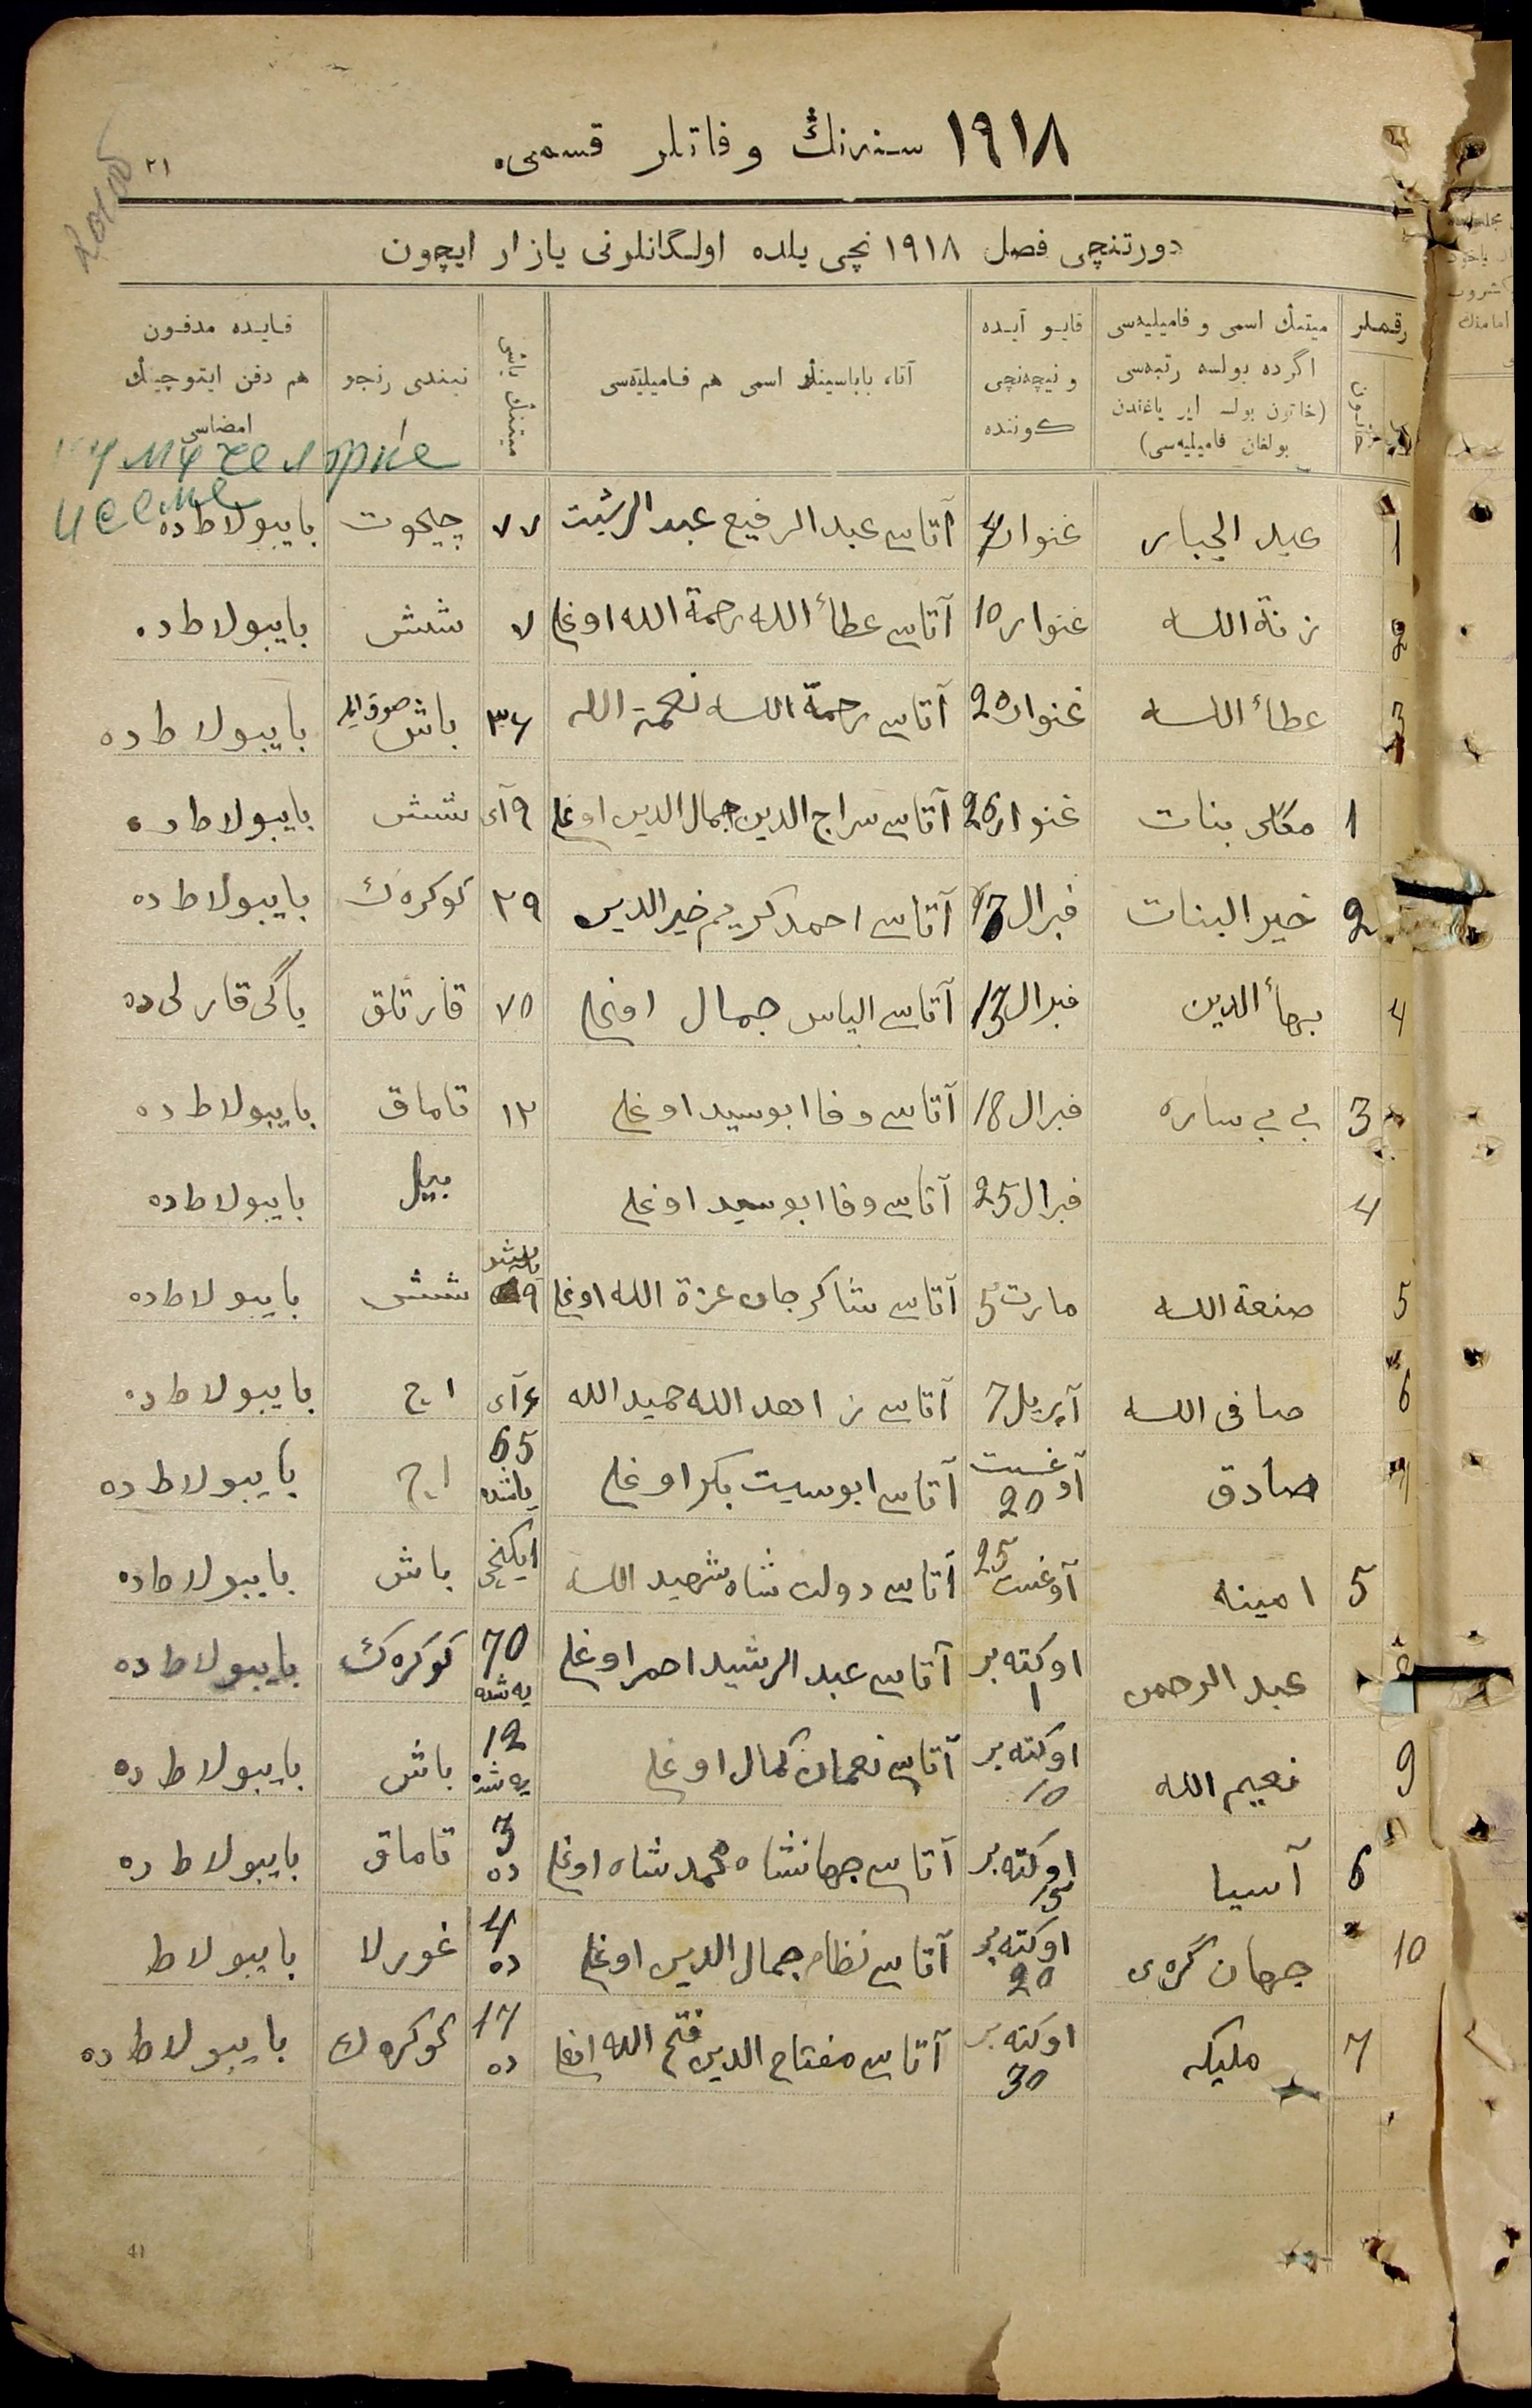 ١٩١٨ سنه‌نڭ وفاتلر قسمی.
٢١
دورتنچی فصل ١٩١٨ نچی یلده اولگانلرنی یازار ایچون
رقملر
میتنڭ اسمی و فامیلیه‌سی اگرده بولسه رتبه‌سی (خاتون بولسه ایر یاغندن بولغان فامیلیه‌سی)
قایو آیده و نیچه‌نچی کوننده
آتا، باباسینڭ اسمی هم فامیلیه‌سی
میتنڭ یاشی
نیندی رنجو
قایده مدفون هم دفن ایتوچینڭ امضاسی
1 عبد الجبار غنوار 4 آتاسی عبد الرفیع عبد الرشیت ٧٧ چیچوت بایبولاطده
2 زنة الله غنوار 10 آتاسی عطأ الله رحمة الله اوغلی ٧ شش بایبولاطده
3 عطأ الله غنوار 20 آتاسی رحمة الله نعمة الله ٣٤ باش بایبولاطده
1 بنات غنوار 26 آتاسی سراج الدین جمال الدین اوغلی ٩ آی شش بایبولاطده
2 خیر البنات فبرال 13 آتاسی احمد کریم خیر الدین ٢٩ کوکره‌ك بایبولاطده
4 بهأ الدین فبرال 13 آتاسی الیاس جمال اوغلی ٧٥ قارتلق یاڭی قارلی ده
3 بی بی ساره فبرال 18 آتاسی وفا ابوسید اوغلی ١٢ تاماق بایبولاطده
4 فبرال 25 آتاسی وفا ابوسید اوغلی بیل بایبولاطده
5 صنعة الله مارت 5 آتاسی شاکرجان عزة الله اوغلی ٩ شش بایبولاطده
6 صافی الله آپریل 7 آتاسی زاهد الله حمید الله ٤ آی اچ بایبولاطده
7 صادق آوغست 20 آتاسی ابوسیت بکر اوغلی 65 یاشده اچ بایبولاطده
5 امینه آوغست 25 آتاسی دولت شاه شهید الله ایکنچی باش بایبولاطده
8 عبد الرحمن اوکته‌بر 1 آتاسی عبد الرشید احمر اوغلی 70 یه‌شده کوکره‌ك بایبولاطده
9 نعیم الله اوکته‌بر 10 آتاسی نعمان کمال اوغلی 12 یه‌شده باش بایبولاطده
6 آسیا اوکته‌بر 15 آتاسی جهانشاه محمد شاه اوغلی 3 ده تاماق بایبولاطده
10 جهان گری اوکته‌بر 20 آتاسی نظام جمال الدین اوغلی 4 ده غورلا بایبولاط
7 ملیکه اوکته‌بر 30 آتاسی مفتاح الدین فتح الله اوغلی 17 ده کوکره‌ك بایبولاطده
41